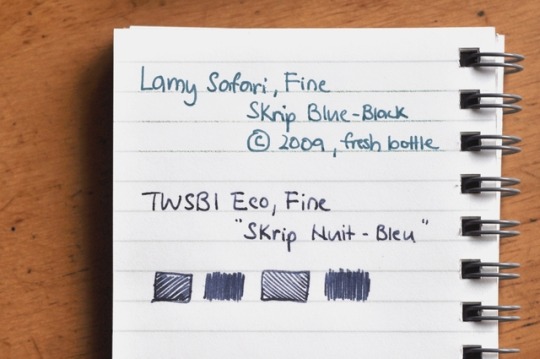 Lamy Safari, Fine
Skrip Blue-Black
© 2009, fresh bottle
TWSBI Eco, Fine
"Skrip Nuit-Bleu"